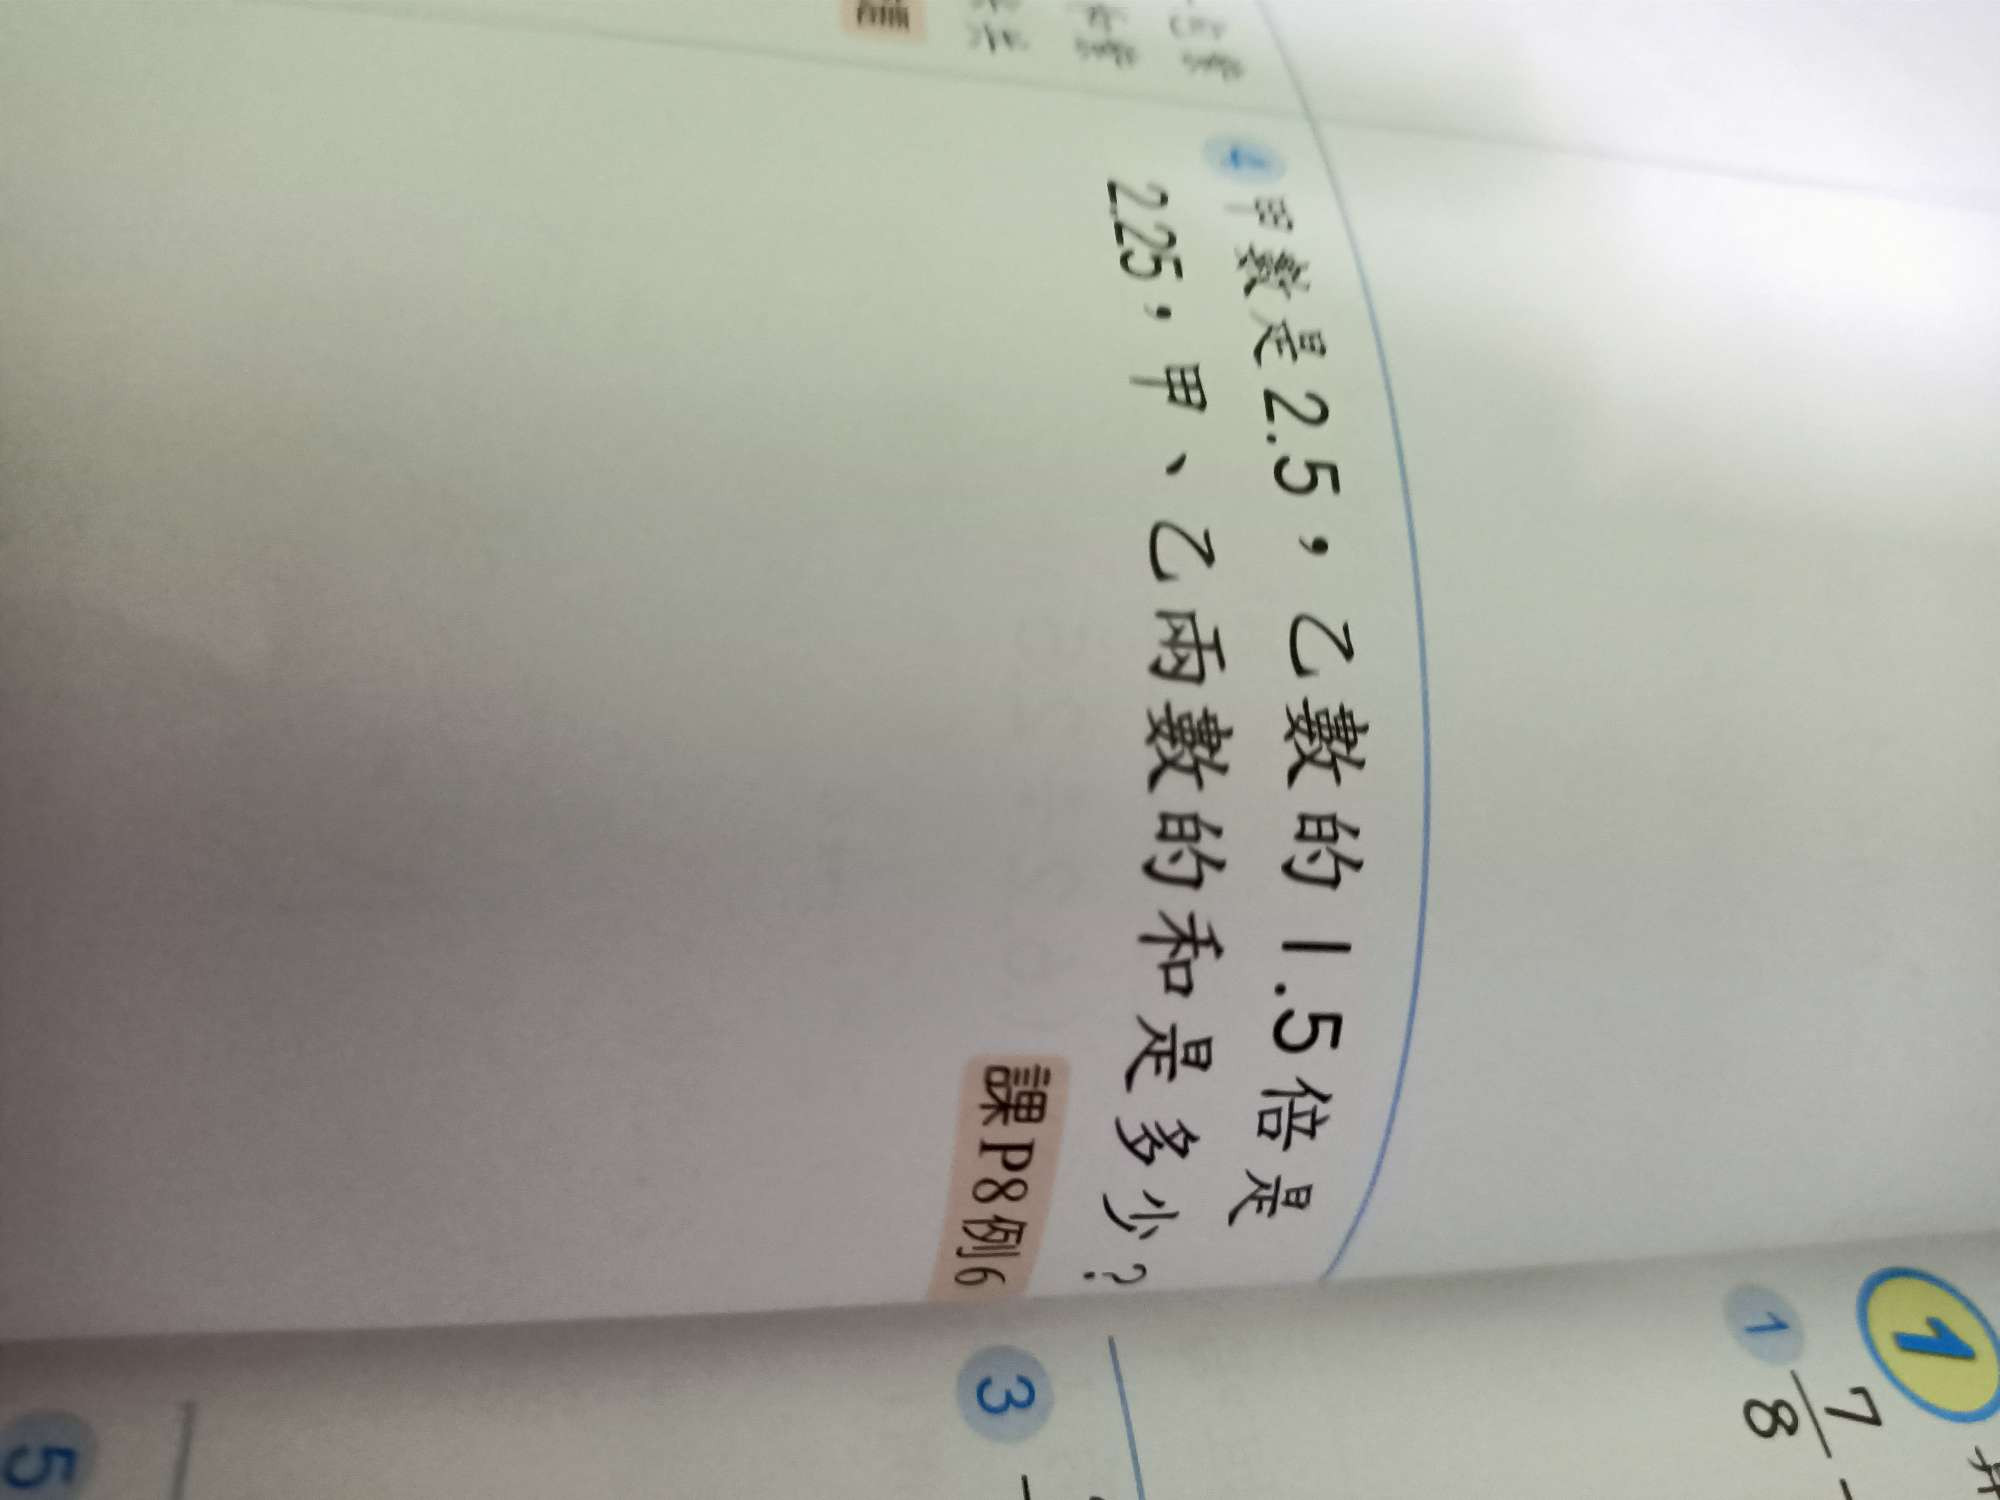 4 甲數是2.5，乙數的1.5倍是
2.25，甲、乙兩數的和是多少？
課P8例6
1
1 7/8
3
5